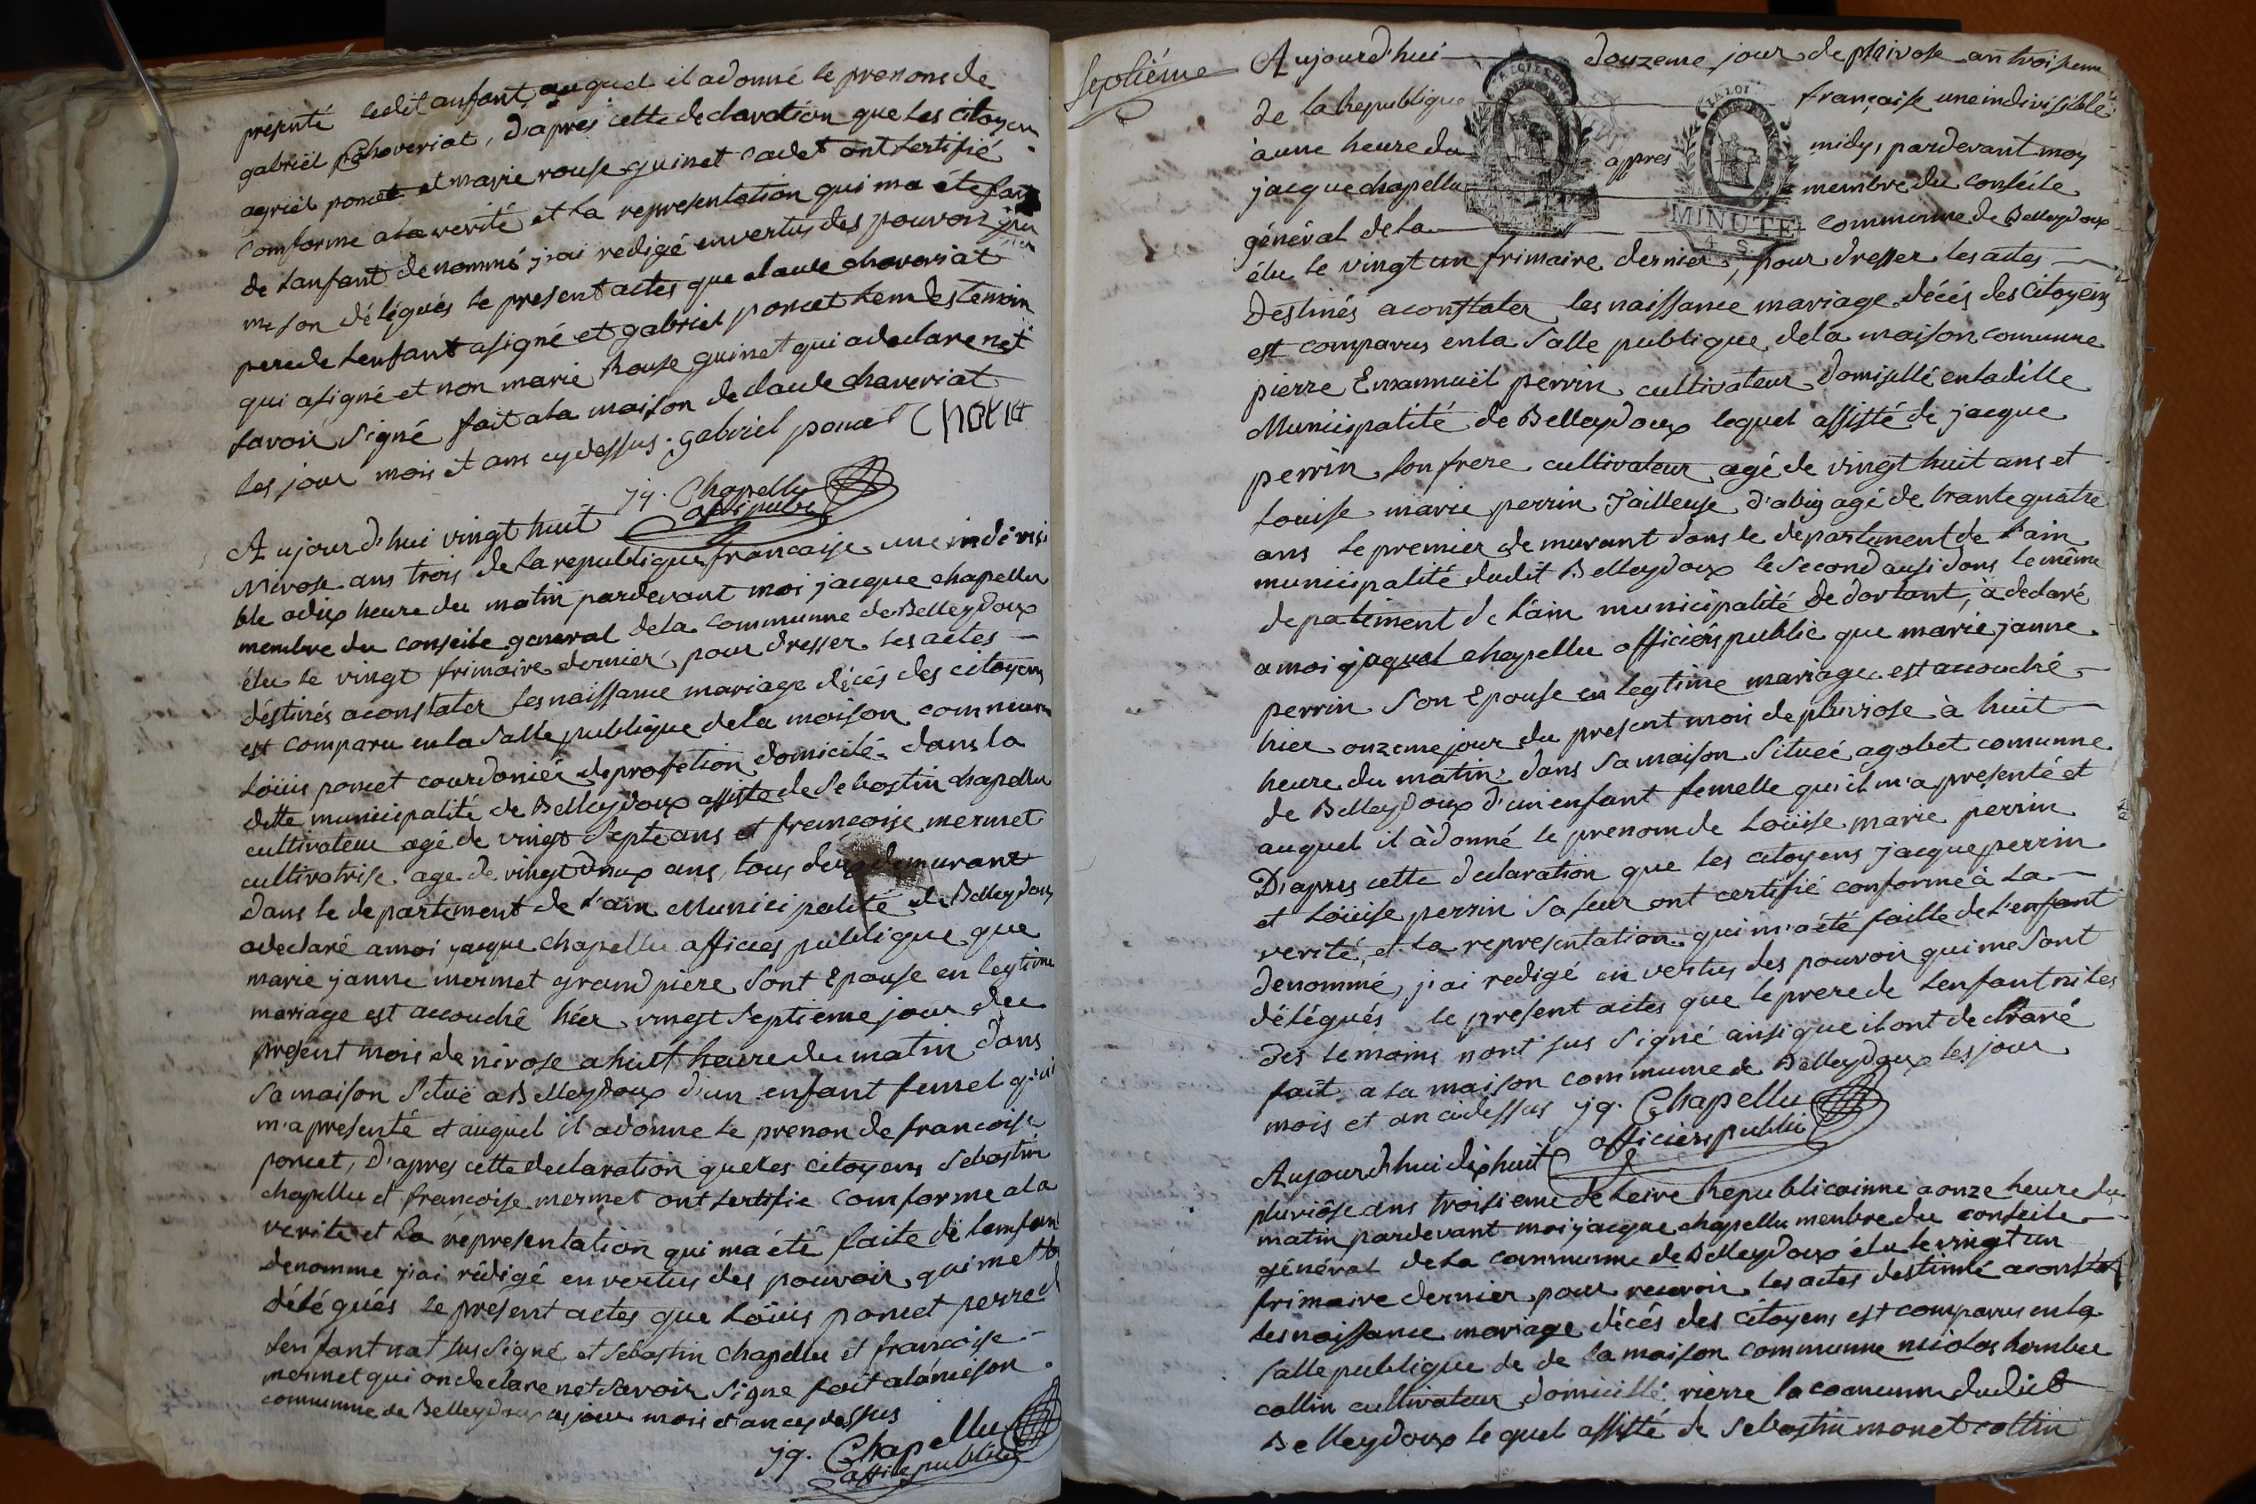 presenté ledit anfant, auquel il a donné le prenons de
gabriël Choveriat, d'aprés cette declaration que les citoyen
agriël poncet et marie rouse guinet cadet ont sertifié
comforme a la verité et la representation qui ma éte fait
de lanfant denommé j'iai redigé en vertus des pouvoir qui
me son délégués le present actes que claude choveriat
pere de lenfant a signé et gabriel poncet lem des temoin
qui a signé et non marie Rouse guinet qui a declare net
savoir signé fait a la maison de claude chaveriat
les jour mois et ans cy dessus. gabriel poncet
jq. Chapellu
Aujourd'hui vingt huit
Nivose ans trois de la republique francaise une indivisi
ble a dix heure du matin pardevant moi jacque chapellu
membre du conseile general de la communne de Belleydoux
élu le vingt frimaire dernier pour dresser les actes
déstinés a constater les naissance mariage décés des citoyens
est comparu en la salle publique de la moison commune
Loüis poncet courdonier de profetion domicilé dans la
ditte municipalité de Belleydoux assiste de Sebastin chapellu
cultivateur agé de vingt septe ans et francoise mermet
cultivatrise age de vingt deux ans, tous deux demurant
dans le departement de l'ain Municipalité de Belleydoux
a declaré a moi jacque chapellu officies publique que
marie janne mermet grand piere sont Epouse en legtime
mariage est accouchê hier vingt septieme jour du
present mois de nivose a huit heure du matin dans
sa maison situé a Belleydoux d'un enfant femel qui
m'a presenté et auquel il a donne le prenon de francoise
poncet, d'apres cette declaration que les citoyens Sebastin
chapellu et francoise mermet ont sertifie comforme a la
verite et la répresentation qui ma été faite de lenfan
denomme j'iai rédigé en vertus des pouvoir qui me
délégués le présent actes que Loüis poncet perre d
lenfant nat sus signé et sebastin chapellu et francoise
mermet qui on declare net savoir signe fait a la meison
communne de Belleydoux les jour mois et an cy dessus
jq. Chapellu
officie publique
Septiéme
Aujourd'hui douzeme jour de pluivose an troiseme
de la Republique française une indivisible
à une heure du appres midy, pardevant moy
jacque chapellu membre du conseile
général de la communne de Belleydoux
élu le vingt un frimaire dernier, pour dresser les actes
destinés a constater les naissance mariage décés des Citoyens
est comparus en la Salle publique de la maison comunne
pierre Emannuël perrin cultivateur domisillé en la dille
Municipalité de Belleydoux lequel assisté de jacque
perrin son frere cultivateur agé de vingt huit ans et
Louise marie perrin Tailleuse d'abis agé de trante quatre
ans le premier demurant dans le departement de l'ain
municipalité dudit Belleydoux le second ausi dans le même
depatement de l'ain municipalité de dortant, à declaré
a moi jaquel chapellu officiers public que marie janne
perrin son Epouse en legtime mariage est accouché
hier onzeme jour du present mois de pluviose à huit
heure du matin dans sa maison situeé a gobet comunne
de Belleydoux d'un enfant femelle qui il m'a presenté et
auquel il à donné le prenom de Loüise marie perrin
D'apres cette declaration que les citoyens jacque perrin
et Loüise perrin sa seur ont certifié conforme à la
verité, et la representation qui m'a été faitte de l'enfant
denommé, j'iai redigé en vertus des pouvoir qui me sont
délégués le present actes que le prere de lenfant ni les
des temoins nont sus signé ainsi que il ont declraré
fait a la maison communne de Belleydoux les jour
mois et an cidessus jq. Chapellu
officiers public
Aujourd'hui dixhuit
pluviôse ans troisieme de leire Republicainne a onze heure du
matin pardevant moi jacque chapellu menbre du conseile
général de la communne de Belleydoux élu le vingt un
frimaire dernier pour recevoir les actes destinée a constat
les naissance mariage décés des citoyens est comparus en la
salle publique de de la maison communne nicolas humbec
collin cultivateur domicillé rierre la comunne dudit
Belleydoux lequel assisté de Sebastin monet collin
LA LOI
MINUTE
4 S.